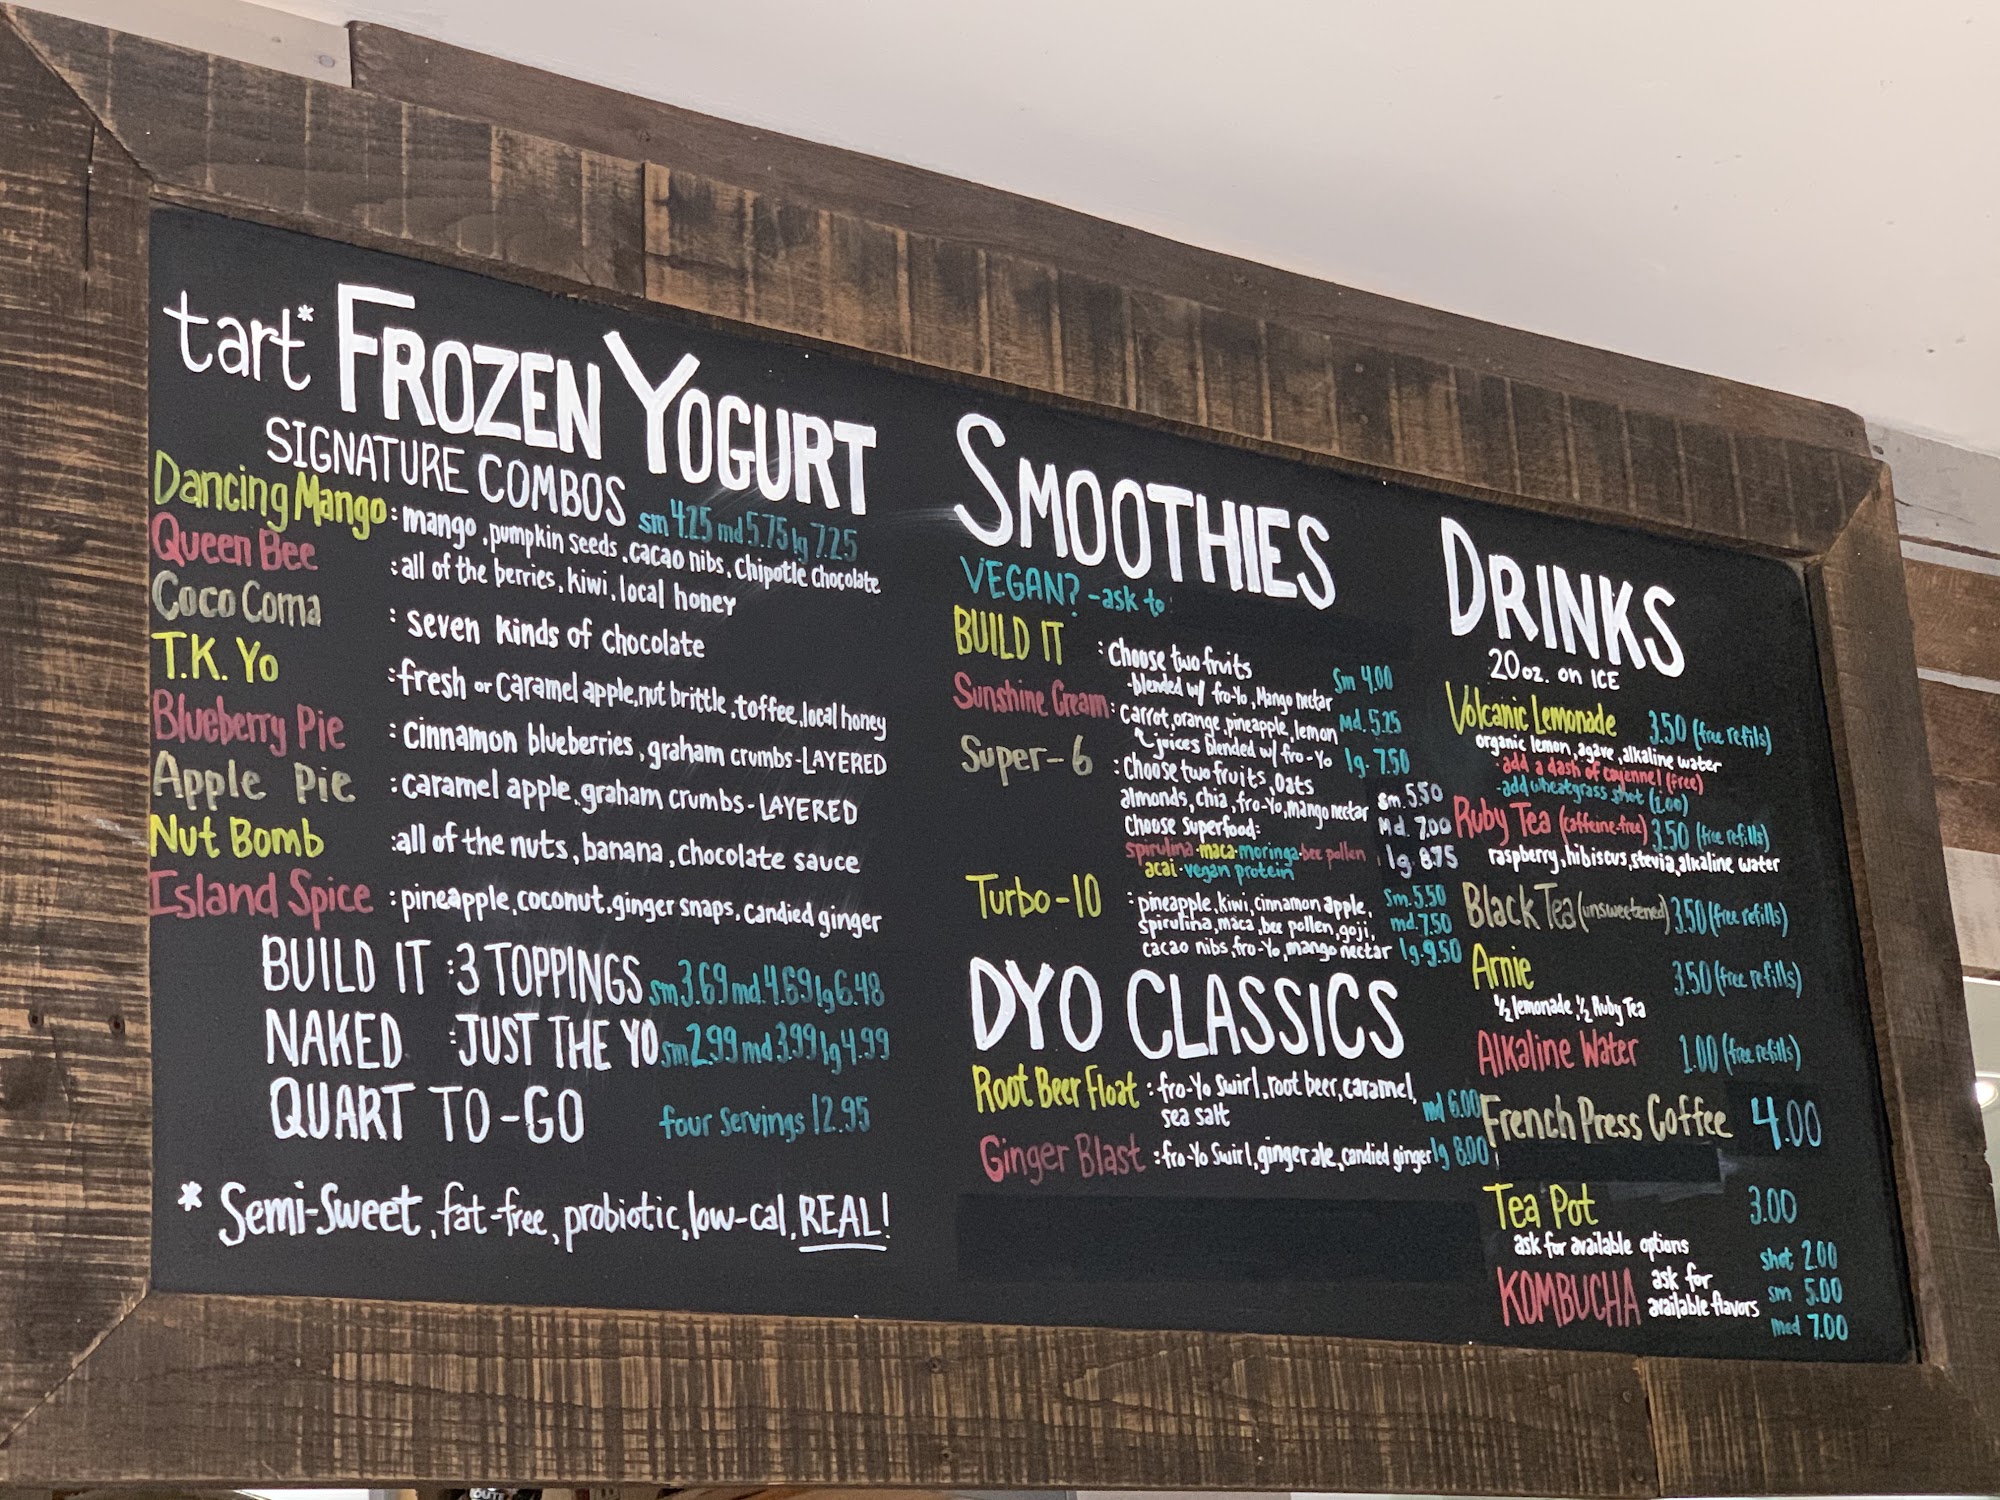 tart* FROZEN YOGURT
SIGNATURE COMBOS sm 4.25 md 5.75 lg 7.25
Dancing Mango : mango, pumpkin seeds, cacao nibs, chipotle chocolate
Queen Bee : all of the berries, kiwi, local honey
Coco Coma : seven kinds of chocolate
T.K. Yo : fresh or caramel apple, nut brittle, toffee, local honey
Blueberry Pie : cinnamon blueberries, graham crumbs - LAYERED
Apple Pie : caramel apple, graham crumbs - LAYERED
Nut Bomb : all of the nuts, banana, chocolate sauce
Island Spice : pineapple, coconut, ginger snaps, candied ginger
BUILD IT : 3 TOPPINGS sm 3.69 md. 4.69 lg 6.48
NAKED : JUST THE YO sm 2.99 md 3.99 lg 4.99
QUART TO-GO four servings 12.95
* Semi-Sweet, fat-free, probiotic, low-cal, REAL!
SMOOTHIES
VEGAN? - ask to:
BUILD IT : Choose two fruits
-blended w/ fro-Yo, Mango nectar sm 4.00
Sunshine Cream : carrot, orange, pineapple, lemon md. 5.25
juices blended w/ fro-Yo lg. 7.50
Super-6 : Choose two fruits, Oats
almonds, chia, fro-Yo, mango nectar sm. 5.50
Choose Superfood: Md. 7.00
spirulina · maca · moringa · bee pollen lg. 8.75
acai · vegan protein
Turbo-10 : pineapple, kiwi, cinnamon apple, Sm. 5.50
spirulina, maca, bee pollen, goji, md. 7.50
cacao nibs, fro-Yo, mango nectar lg. 9.50
DYO CLASSICS
Root Beer Float : fro-Yo swirl, root beer, caramel,
sea salt md 6.00
Ginger Blast : fro-Yo swirl, ginger ale, candied ginger lg 8.00
DRINKS
20 oz. on ICE
Volcanic Lemonade 3.50 (free refills)
organic lemon, agave, alkaline water
- add a dash of cayennel (free)
- add wheatgrass shot (1.00)
Ruby Tea (caffeine-free) 3.50 (free refills)
raspberry, hibiscus, stevia, alkaline water
Black Tea (unsweetened) 3.50 (free refills)
Arnie 3.50 (free refills)
1/2 lemonade, 1/2 Ruby Tea
Alkaline Water 1.00 (free refills)
French Press Coffee 4.00
Tea Pot 3.00
ask for available options
KOMBUCHA ask for available flavors
shot 2.00
sm 5.00
med 7.00